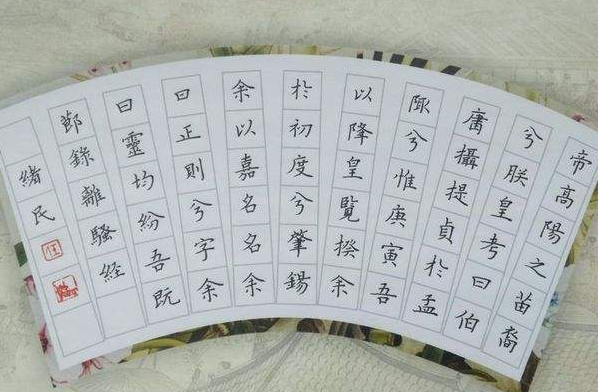 帝高陽之苗裔
兮朕皇考曰伯
庸攝提貞於孟
陬兮惟庚寅吾
以降皇覽揆余
於初度兮肇錫
余以嘉名名余
曰正則兮字余
曰靈均紛吾既
節錄離騷経
緒民